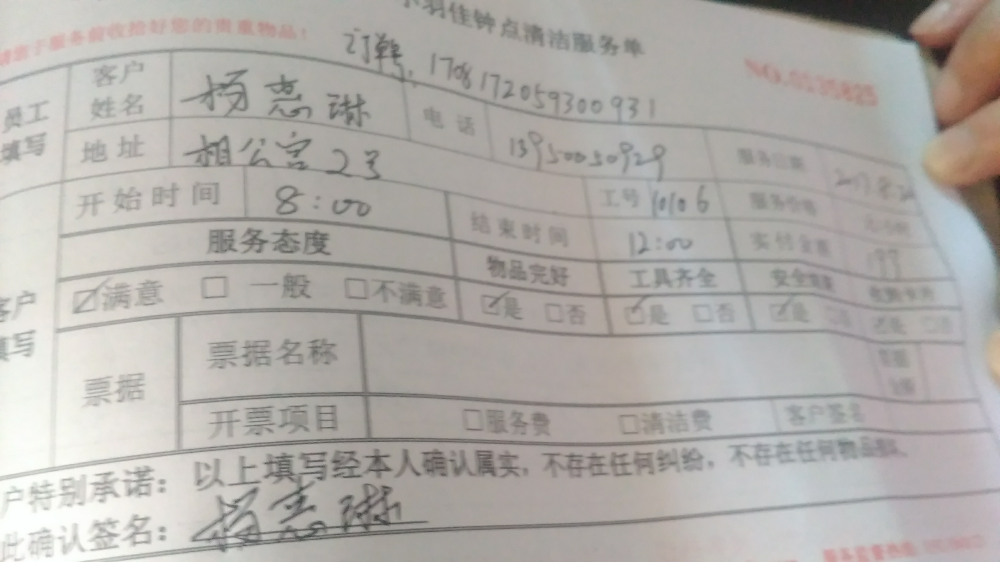 羽佳钟点清洁服务单
请您于服务前收拾好您的贵重物品！
订单 1708172059300931
NO.0135825
员工填写 客户姓名 杨惠琳 电话 13950030929 服务日期
地址 相公宫2号 工号 10106 服务价格
开始时间 8:00 结束时间 12:00 实付金额 197
服务态度 物品完好 工具齐全
☑满意 □一般 □不满意 ☑是 □否 ☑是 □否 ☑是 ☑是
票据 票据名称
开票项目 □服务费 □清洁费 客户签名
户特别承诺：以上填写经本人确认属实，不存在任何纠纷，不存在任何物品
此确认签名：杨惠琳